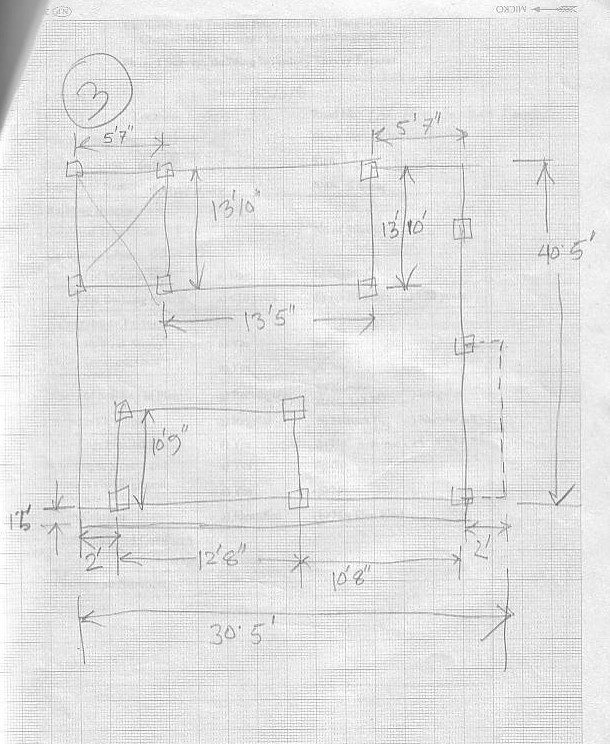 MICRO
3
5'7"
5'7"
13'10"
13'10'
40.5'
13'5"
10'9"
2'
12'8"
10'8"
2'
30.5'